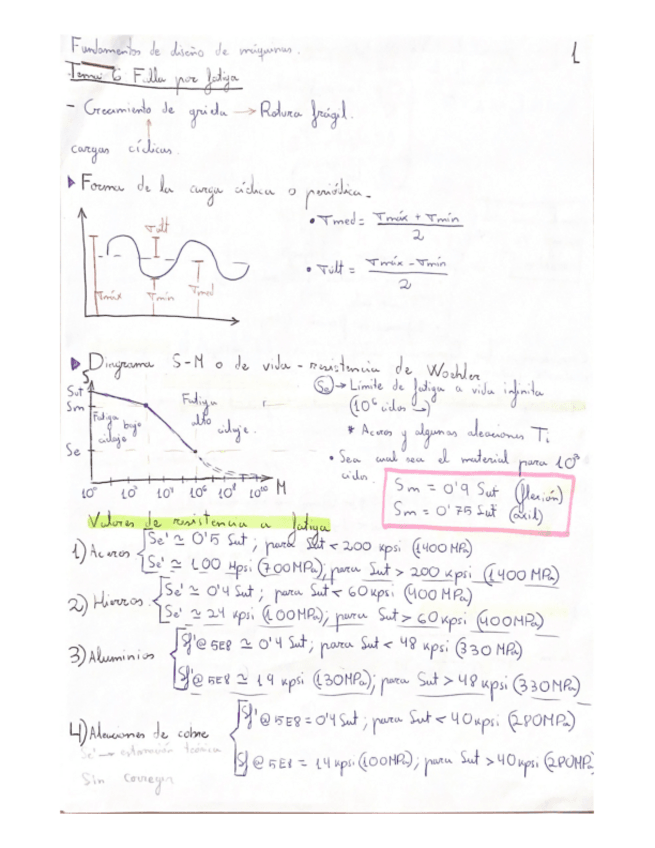 Fundamentos de diseño de máquinas. 1
Tema 6 Falla por fatiga
- Crecimiento de grieta → Rotura frágil.
cargas cíclicas.
Forma de la carga cíclica o periódica.
• σmed = σmáx + σmín / 2
σalt
• σalt = σmáx - σmín / 2
σmáx σmín σmed
Diagrama S-N o de vida-resistencia de Woehler
S
Sut
Sm
Se
Fatiga bajo ciclaje
Fatiga alto ciclaje.
10⁰ 10² 10³ 10⁶ 10⁸ 10¹⁰ N
Se → Límite de fatiga a vida infinita
(10⁶ ciclos →)
* Aceros y algunas aleaciones Ti
• Sea cual sea el material para 10³
ciclos.
Sm = 0'9 Sut (flexión)
Sm = 0'75 Sut (axil)
Valores de resistencia a fatiga
1) Aceros
Se' ≃ 0'5 Sut ; para Sut < 200 kpsi (1400 MPa)
Se' ≃ 100 kpsi (700MPa); para Sut > 200 kpsi (1400 MPa)
2) Hierros
Se' ≃ 0'4 Sut ; para Sut < 60 kpsi (400 MPa)
Se' ≃ 24 kpsi (100MPa); para Sut > 60 kpsi (400MPa)
3) Aluminios
Sf'@5E8 ≃ 0'4 Sut; para Sut < 48 kpsi (330 MPa)
Sf'@5E8 ≃ 19 kpsi (130MPa); para Sut > 48 kpsi (330MPa)
4) Aleaciones de cobre
Sf'@5E8 = 0'4 Sut ; para Sut < 40 kpsi (280MPa)
Sf'@5E8 = 14 kpsi (100MPa); para Sut > 40 kpsi (280MPa)
Se' → estimación teórica
Sin corregir